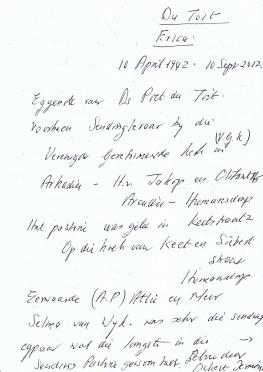 Du Toit
Erica.
10 April 1942 - 10 Sept 2012.
Eggenote van Ds Piet du Toit.
Voorheen Sendingleraar by die
(V.G.K)
Verenigde Gereformeerde Kerk in
Arkadia - H.v. Jakop en Olifant
Arcadia - Humansdorp
Hul pastorie was geleë in Keetstraat 2
Op die hoek van Keet en Siebert
straat
Humansdorp
Eerwaarde (A.P) Attie en Mev
Selma van Wyk. was seker die sending
egpaar wat die langste in die →
Sending Pastorie gewoon het.